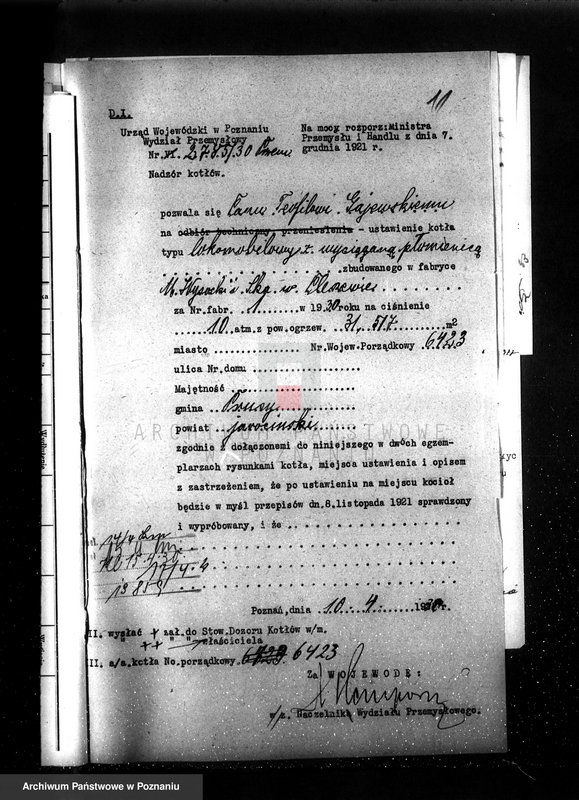 11
D.I.
Urząd Wojewódzki w Poznaniu
Wydział Przemysłowy
Nr. VI. 2785/30
Nadzór kotłów.
Na mocy rozporz:Ministra
Przemysłu i Handlu z dnia 7.
grudnia 1921 r.
pozwala się Panu Teofilowi Gajewskiemu
na odbiór techniczny, przeniesienie - ustawienie kotła
typu lokomobilowy z wysięganą płomienicą
. . . . . . . . . . . . . . . .zbudowanego w fabryce
M. Wysocki i Ska. w Pleszewie . . . . . . . .
za Nr.fabr. . .1. . . . w 1930 roku na ciśnienie
. . . 10 atm.z pow.ogrzew. 31,517. . . . . .m2
miasto . . . . . . . . . . Nr.Wojew.Porządkowy 6423
ulica Nr.domu . . . . . . . . . . . . .
Majętność . . . . . . . . . . . . . .
gmina . . Prusy . . . . . . .
powiat . . jarociński . . . . .
zgodnie z dołączonemi do niniejszego w dwóch egzem-
plarzach rysunkami kotła, miejsca ustawienia i opisem
z zastrzeżeniem, że po ustawieniu na miejscu kocioł
będzie w myśl przepisów dn.8.listopada 1921 sprawdzony
i wypróbowany, i że . . . . . . . . . . . . . . . .
Poznań,dnia . 10. . 4 . . . .1930r.
II. wysłać + zał.do Stow.Dozoru Kotłów w/m.
" ++ " " właściciela
II. a/a.kotła No.porządkowy. 6423. 6423
Za WOJEWODĘ:
w/z. Naczelnika Wydziału Przemysłowego.
Archiwum Państwowe w Poznaniu